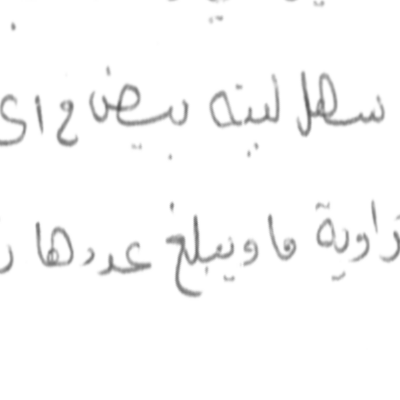 سهل لينه بيض و
زاوية ما ويبلغ عددها